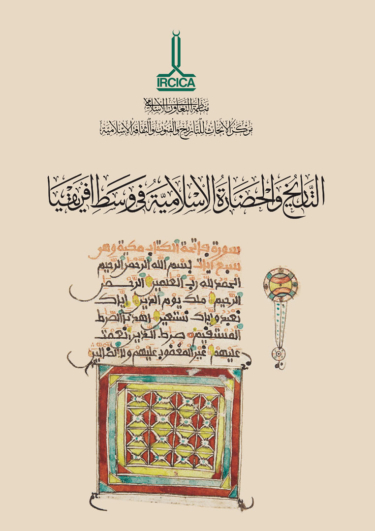 IRCICA
منظمة التعاون الإسلامي
مركز الأبحاث للتاريخ والفنون والثقافة الإسلامية
التاريخ والحضارة الإسلامية في وسط افريقيا
سورة فاتحة الكتاب مكية وهي
سبع ءايات بسم الله الرحمن الرحيم
الحمد لله رب العلمين الرحمن
الرحيم ملك يوم الدين إياك
نعبد وإياك نستعين اهدنا الصرط
المستقيم صرط الذين أنعمت
عليهم غير المغضوب عليهم ولا الضالين